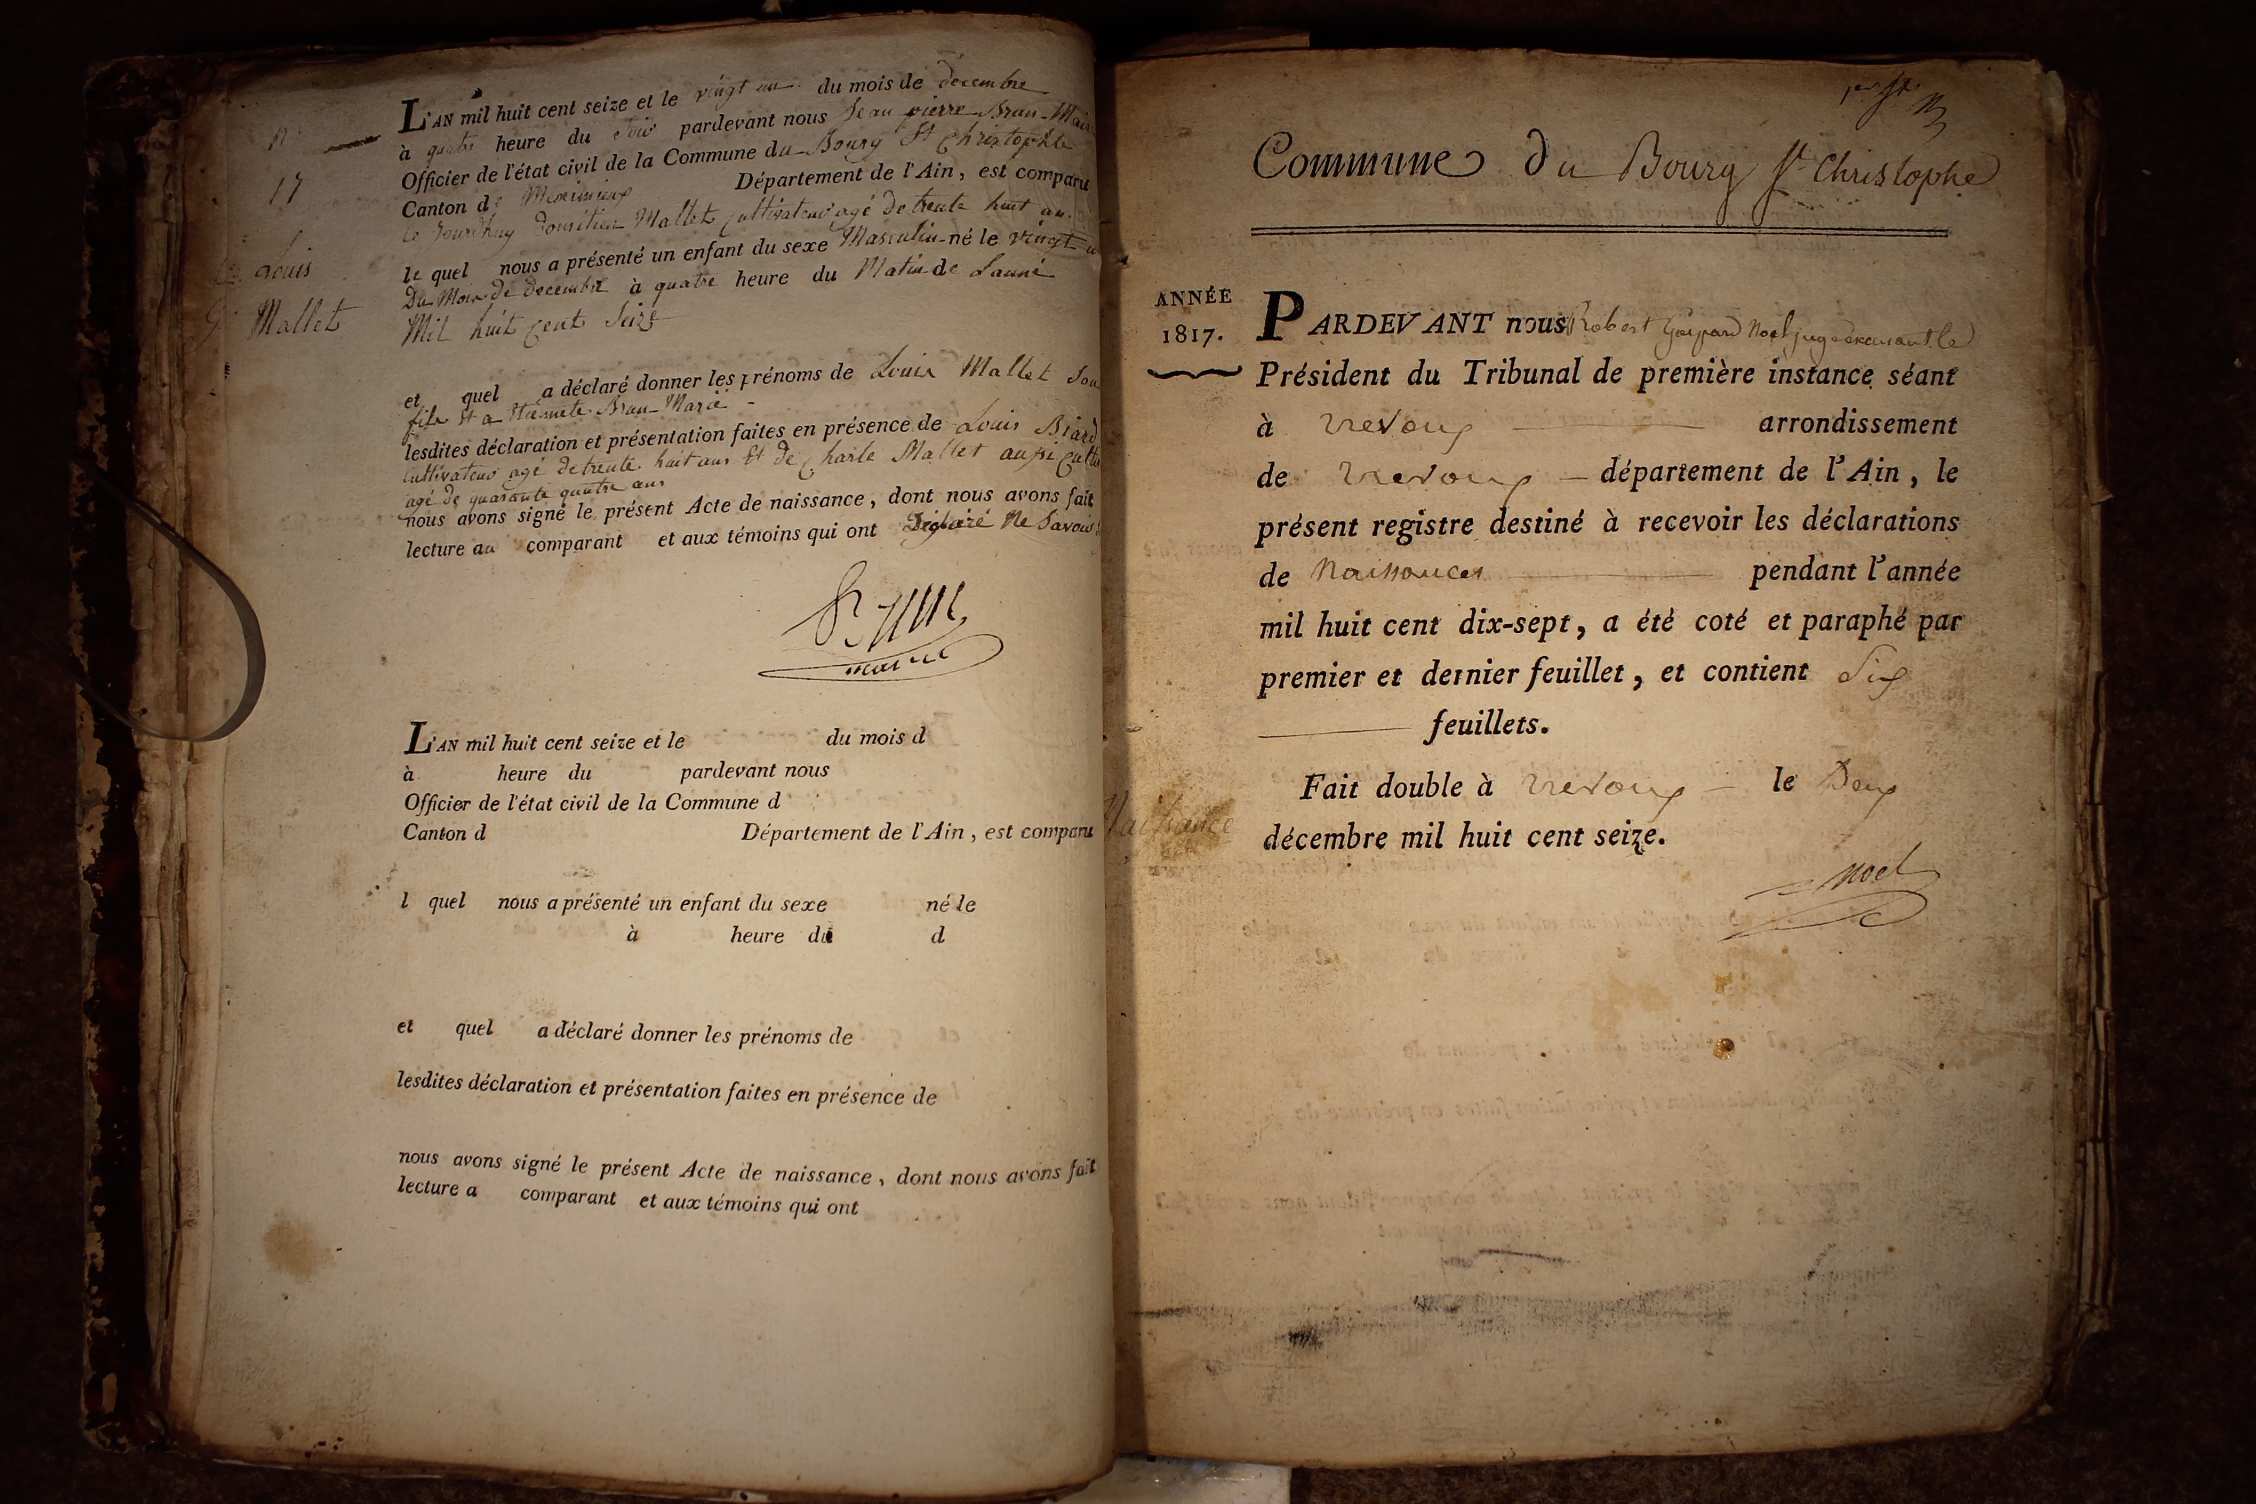 N.°
17
Louis
Mallet
L'AN mil huit cent seize et le vingt un du mois de decembre
à quatre heure du Soir pardevant nous Jean pierre Brun Maire
Officier de l'état civil de la Commune du Bourg St Christophle
Canton de Meximieux Département de l'Ain, est comparu
Mallet Cultivateur agé de trente huit ans
le quel nous a présenté un enfant du sexe Masculin né le vingt un
Du Mois de decembre à quatre heure du Matin de Lanné
Mil huit cent Seize
et quel a déclaré donner les prénoms de Louis Mallet Son
fils Et a Brun Marie
lesdites déclaration et présentation faites en présence de Louis Biard
Cultivateur agé de trente huit ans Et de Charle Mallet aussi Cultiv
agé de quarante quatre ans
nous avons signé le présent Acte de naissance, dont nous avons fait
lecture au comparant et aux témoins qui ont Déclaré Ne Savoir
Brun
maire
L'AN mil huit cent seize et le du mois d
à heure du pardevant nous
Officier de l'état civil de la Commune d
Canton d Département de l'Ain, est comparu
l quel nous a présenté un enfant du sexe né le
à heure du d
et quel a déclaré donner les prénoms de
lesdites déclaration et présentation faites en présence de
nous avons signé le présent Acte de naissance, dont nous avons fait
lecture a comparant et aux témoins qui ont
1er
Commune du Bourg St Christophe
ANNÉE
1817.
PARDEVANT nous Robert Gaspard Noel juge exerçant le
Président du Tribunal de première instance séant
à Trevoux arrondissement
de Trevoux département de l'Ain, le
présent registre destiné à recevoir les déclarations
de Naissances pendant l'année
mil huit cent dix-sept, a été coté et paraphé par
premier et dernier feuillet, et contient Six
feuillets.
Fait double à Trevoux le Deux
décembre mil huit cent seize.
Noel
Naissance